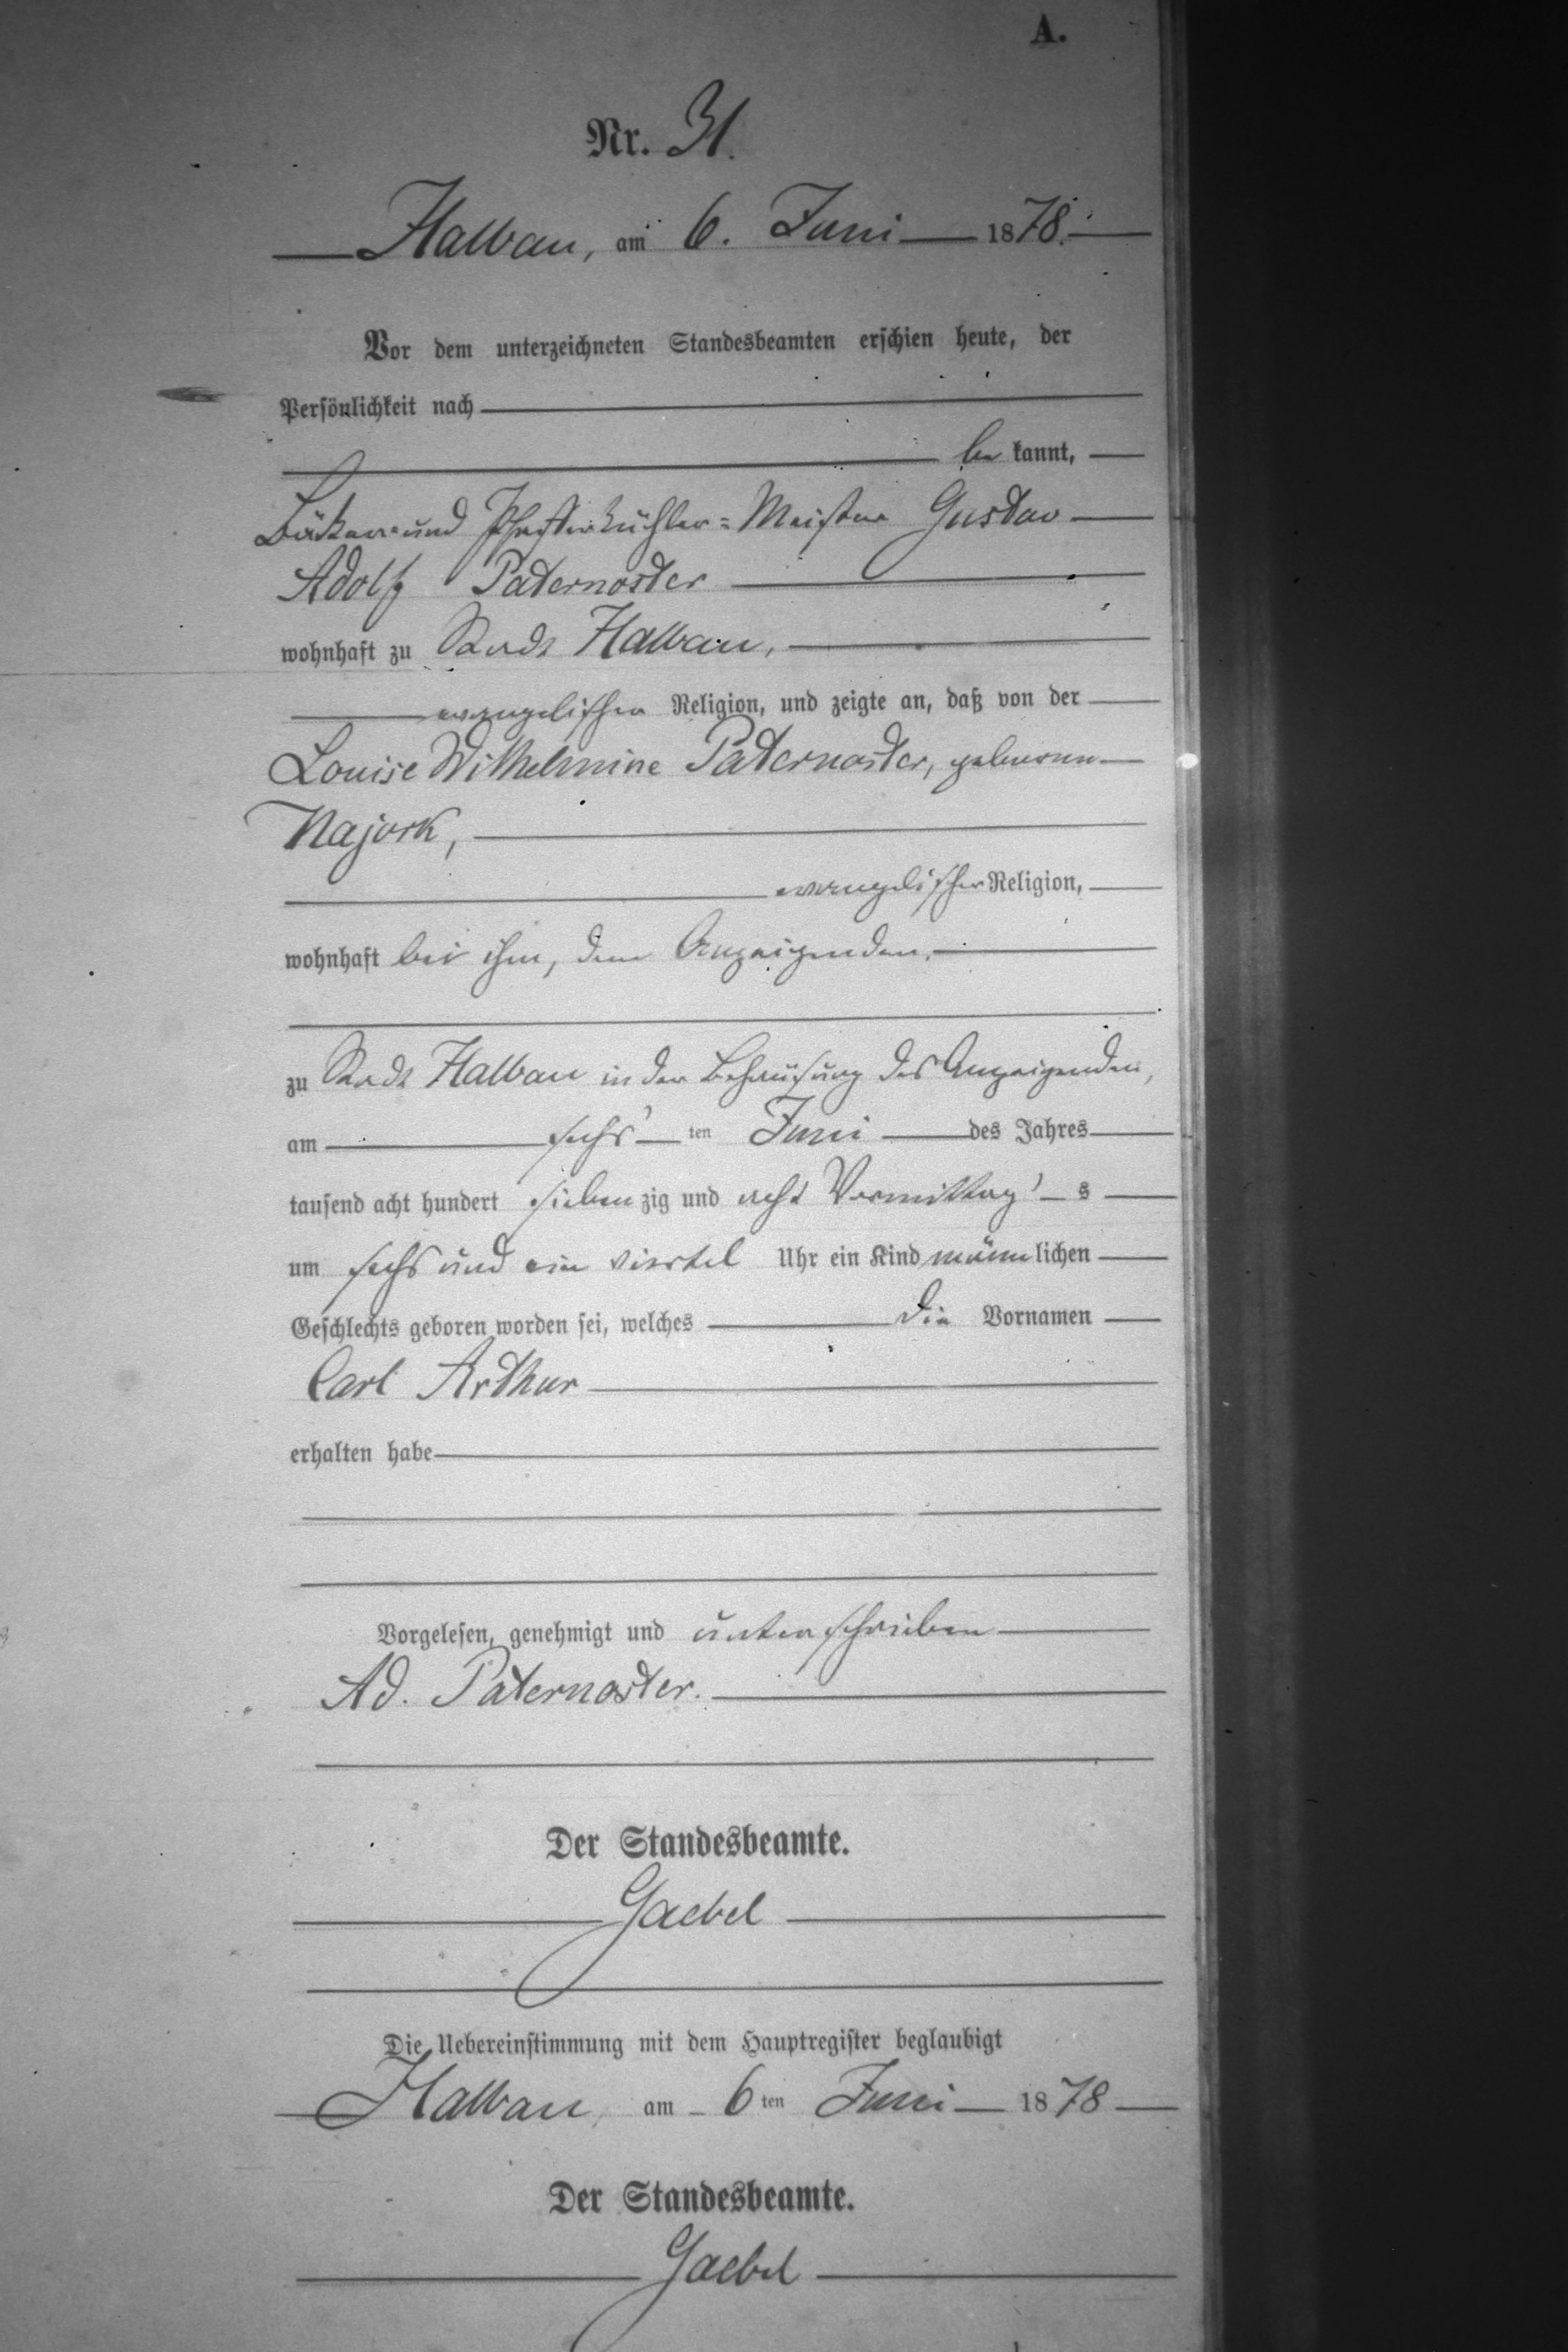 A.
Nr. 31.
Halbau, am 6. Juni 1878.
Vor dem unterzeichneten Standesbeamten erschien heute, der
Persönlichkeit nach
be kannt,
Bäcker- und Pfefferküchler-Meister Gustav
Adolf Paternoster
wohnhaft zu Stadt Halbau,
evangelischer Religion, und zeigte an, daß von der
Louise Wilhelmine Paternoster, geborene
Najork,
evangelischer Religion,
wohnhaft bei ihm, dem Anzeigenden,
zu Stadt Halbau in der Behausung des Anzeigenden,
am sechs ten Juni des Jahres
tausend acht hundert sieben zig und acht Vormittag s
um sechs und ein viertel Uhr ein Kind männlichen
Geschlechts geboren worden sei, welches die Vornamen
Carl Arthur
erhalten habe
Vorgelesen, genehmigt und unterschrieben
Ad. Paternoster.
Der Standesbeamte.
Gaebel
Die Uebereinstimmung mit dem Hauptregister beglaubigt
Halbau, am 6 ten Juni 1878
Der Standesbeamte.
Gaebel